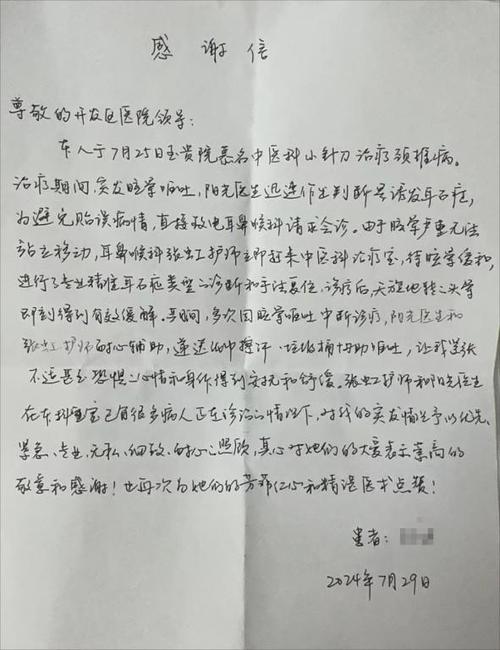 感谢信
尊敬的开发区医院领导：
本人于7月25日至贵院慕名中医科小针刀治疗颈椎病。
治疗期间，突发眩晕呕吐，阳光医生迅速作出判断是诱发耳石症，
为避免贻误病情，直接致电耳鼻喉科请求会诊。由于眩晕严重无法
站立移动，耳鼻喉科张虹护师立即赶来中医科治疗室，待眩晕缓和，
进行了专业精准耳石症类型之诊断和手法复位，诊疗后，天旋地转之头晕
即刻得到有效缓解。期间，多次因眩晕呕吐中断诊疗，阳光医生和
张虹护师耐心辅助，递送纸巾擦汗、垃圾桶协助呕吐，让我紧张
不适甚至恐惧之心情和身体得到安抚和舒缓。张虹护师和阳光医生
在本科室已有很多病人正在诊治的情况下，对我的突发情况予以优先、
紧急、专业、无私、细致、耐心之照顾，真心对她们的大爱表示崇高的
敬意和感谢！也再次为她们的芳菲仁心和精湛医术点赞！
患者：
2024年7月29日